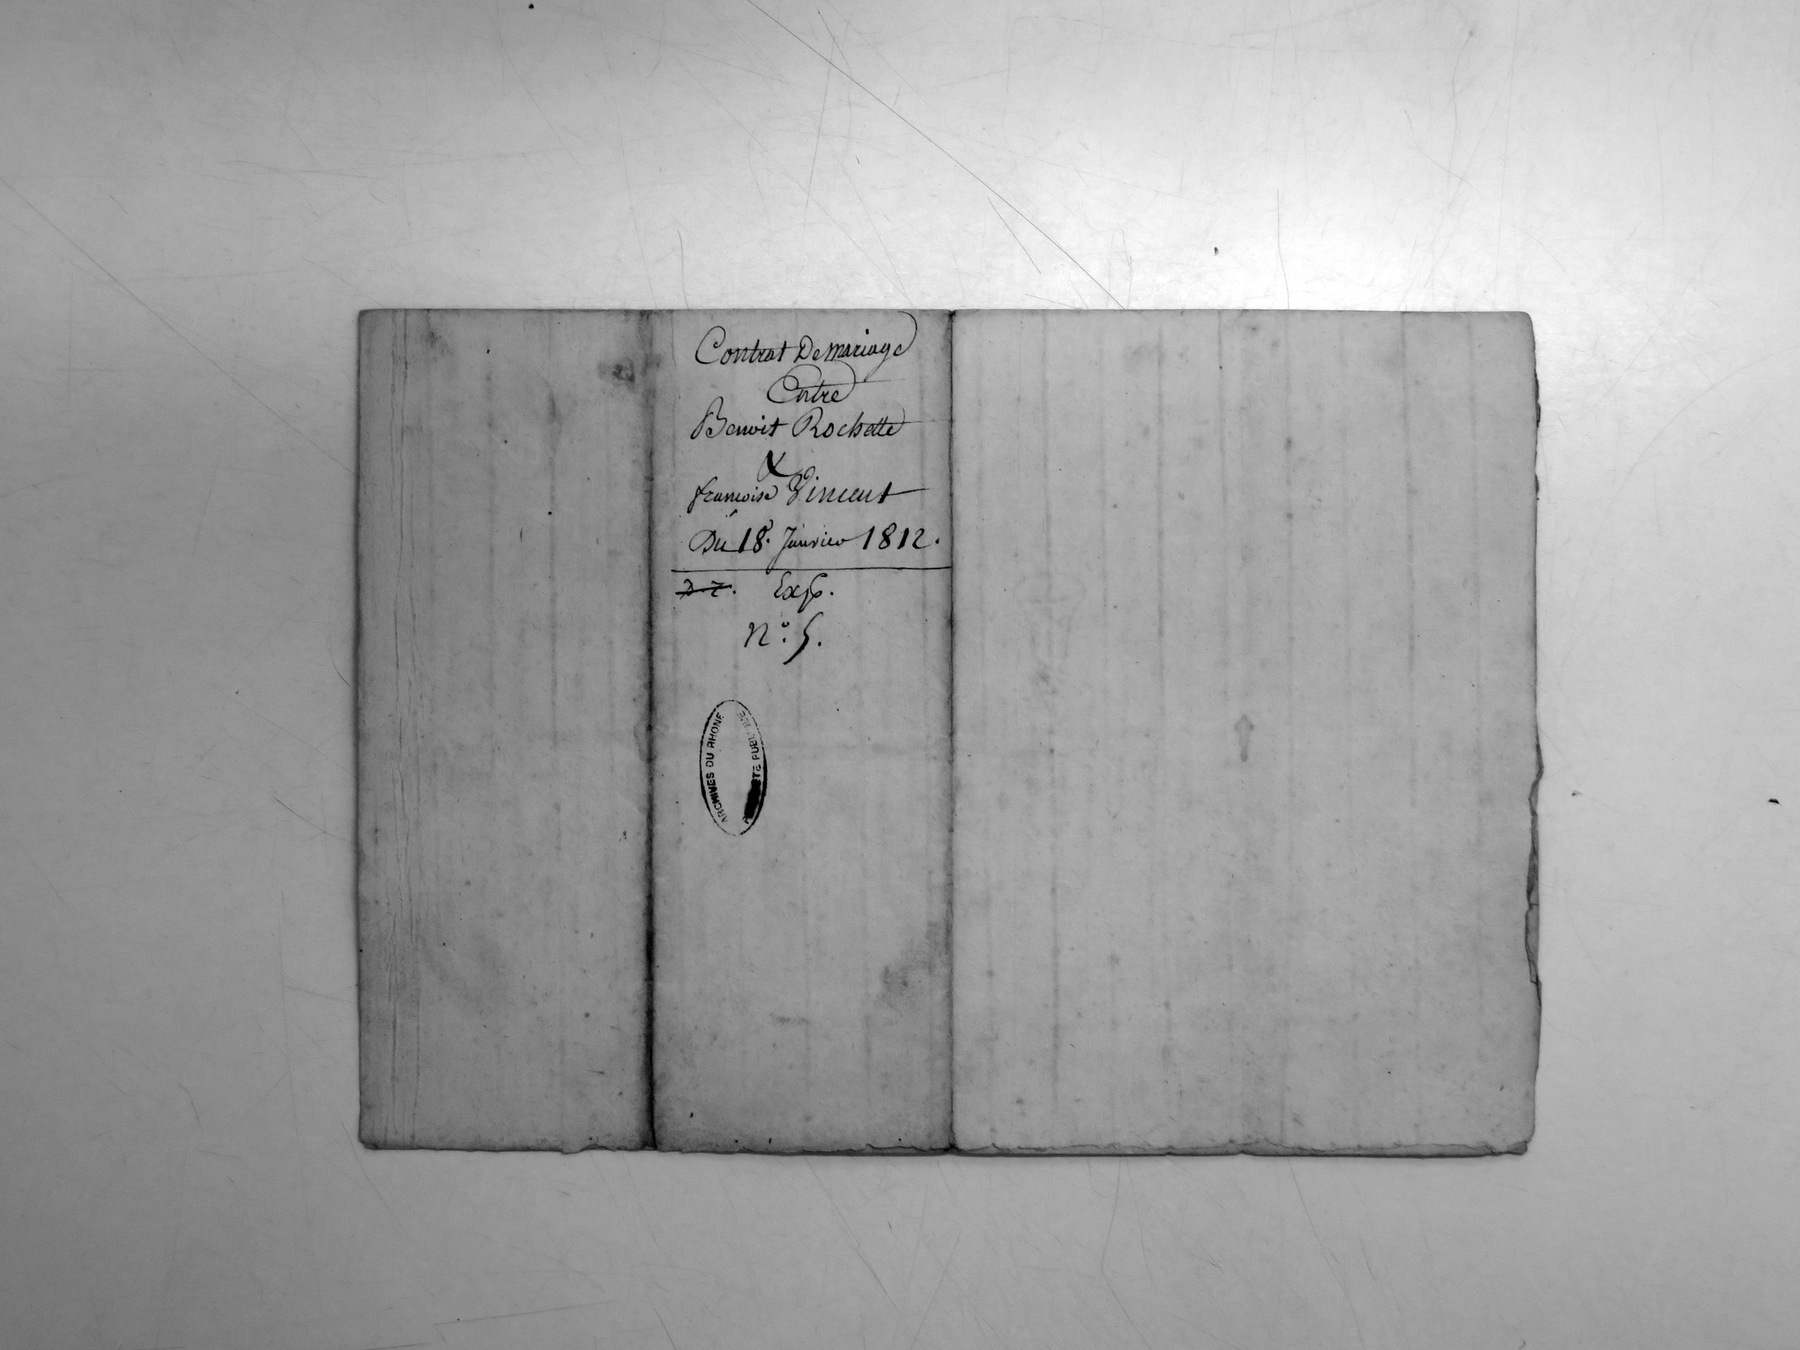 Contrat De mariage
Entre
Benoit Rochette
&
françoise Vincent
Du 18. Janvier 1812.
Exp.
N.° 5.
ARCHIVES DU RHÔNE
PUBLIQUE